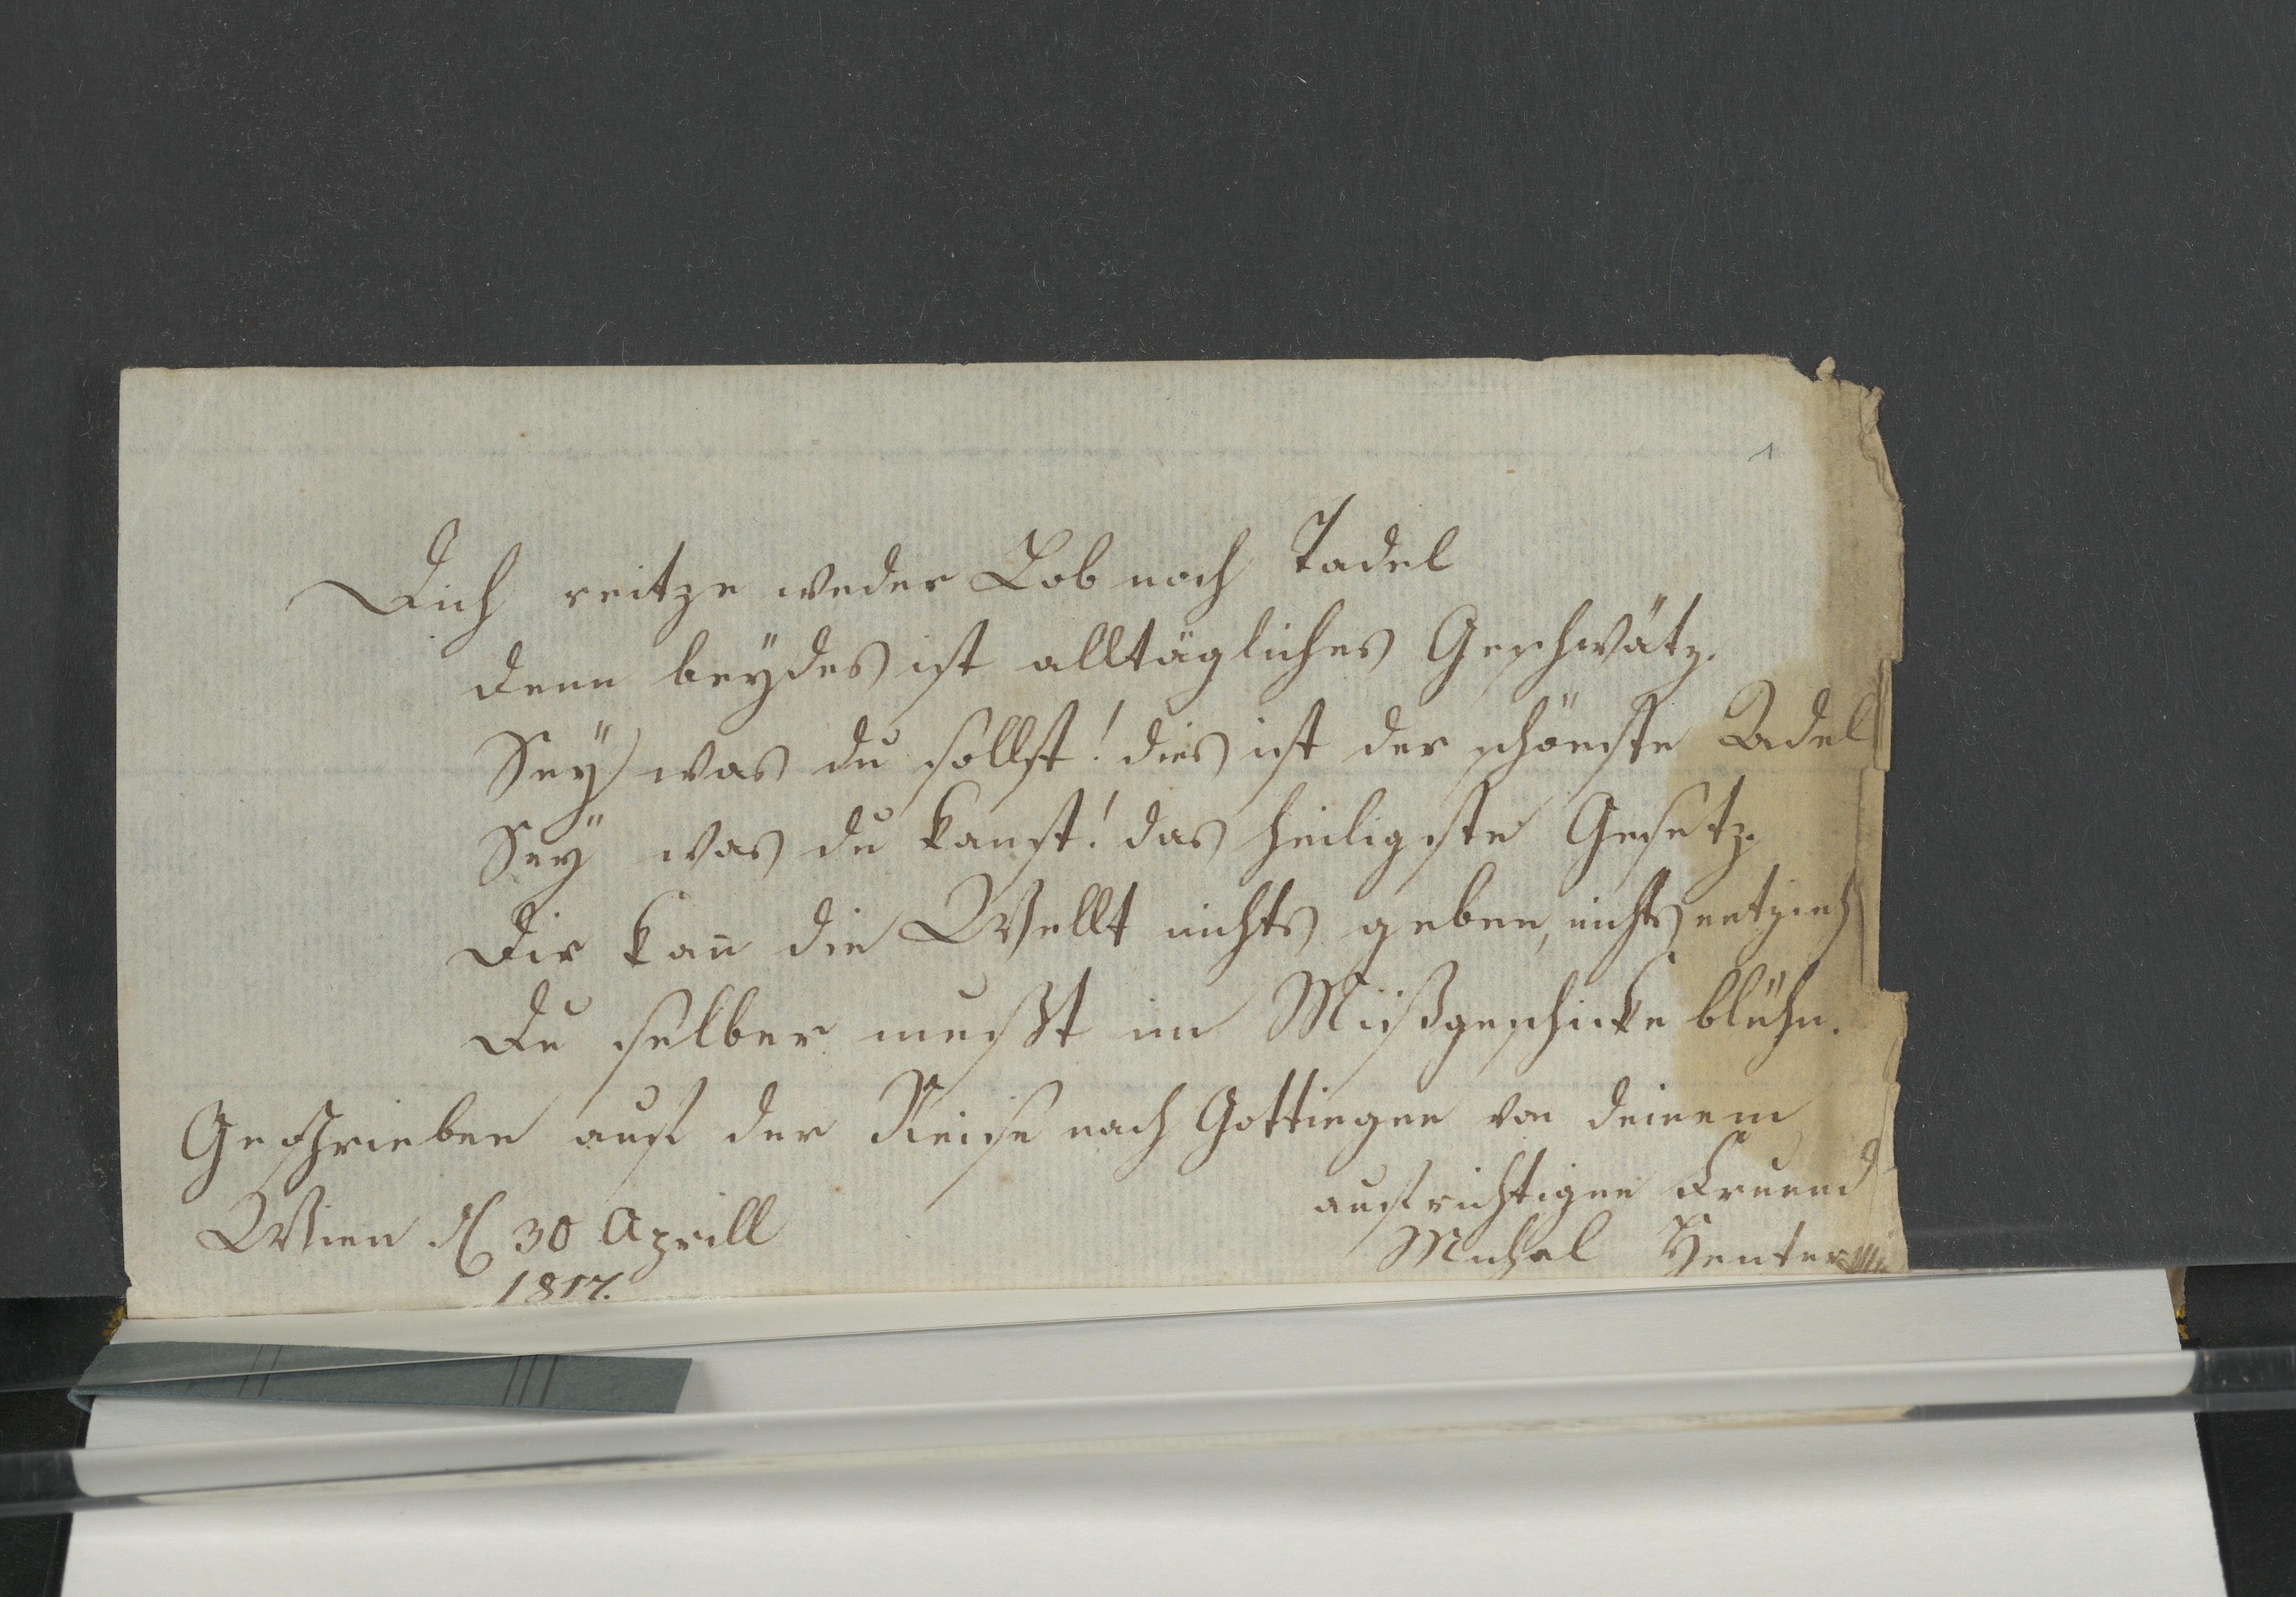 1
Dich reitze weder Lob noch Tadel
denn beÿdes ist alltägliches Geschwätz.
Seÿ was du sollst! dies ist der schönste Adel
Seÿ was du kanst! das heiligste Gesetz.
Dir kan̅ die Wellt nichts geben, nichts entzieh
Du selber mußt im Mißgeschicke blühn.
Geschrieben auf der Reise nach Gottingen von deinem
aufrichtigen Freund
Wien d 30 Aprill
Michael Henter
1817.